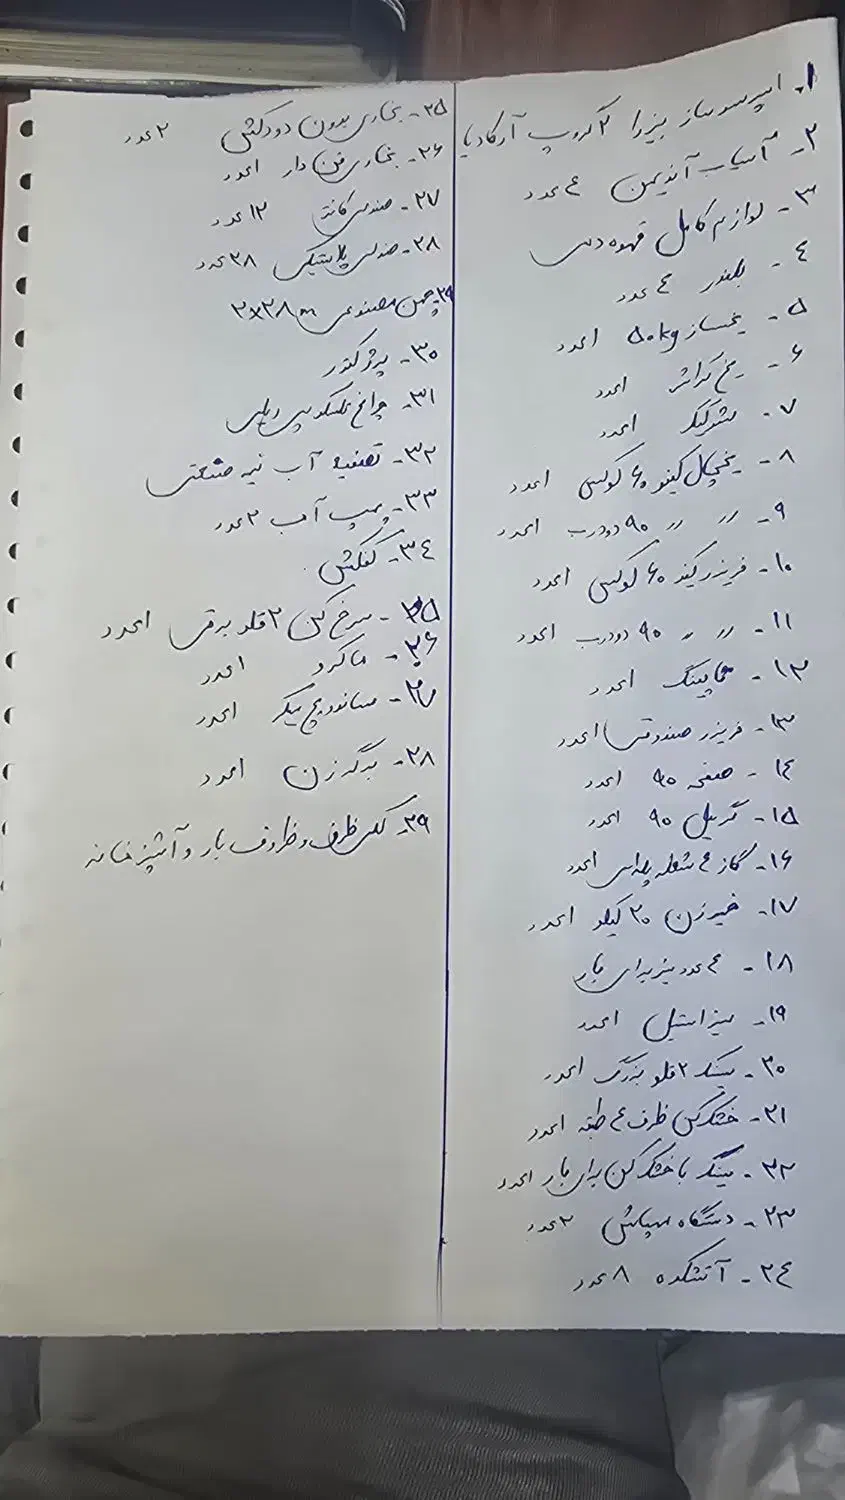 ۱- اسپرسو ساز بیزرا ۲ گروپ آرکادیا
۲- آسیاب آندیمن ۴ عدد
۳- لوازم کامل قهوه دمی
۴- بلندر ۴ عدد
۵- یخساز ۵۰kg ۱عدد
۶- یخ کراشر ۱عدد
۷- شیرکیک ۱عدد
۸- یخچال کیند ۶۰ لوکس ۱عدد
۹- // // ۹۰ دودرب ۱عدد
۱۰- فریزر کیند ۶۰ لوکس ۱عدد
۱۱- // // ۹۰ دودرب ۱عدد
۱۲- تاپینگ ۱عدد
۱۳- فریزر صندوقی ۱عدد
۱۴- صفحه ۹۰ ۱عدد
۱۵- گریل ۹۰ ۱عدد
۱۶- گاز ۴ شعله پله‌ای ۱عدد
۱۷- خمیرزن ۲۰ کیلو ۱عدد
۱۸- ۴ عدد میز برای بار
۱۹- میز استیل ۱عدد
۲۰- سینک ۲ قلو بزرگ ۱عدد
۲۱- خشک کن ظرف ۴ طبقه ۱عدد
۲۲- سینک با خشک کن برای بار ۱عدد
۲۳- دستگاه مهپاش ۲عدد
۲۴- آتشکده ۸ عدد
۲۵- بخاری بدون دودکش ۲ عدد
۲۶- بخاری فن دار ۱عدد
۲۷- صندلی کانتر ۱۲ عدد
۲۸- صندلی پلاستیکی ۲۸ عدد
۲۹- چمن مصنوعی ۲×۲۸m
۳۰- پرژکتور
۳۱- چراغ تلسکوپی ریلی
۳۲- تصفیه آب نیمه صنعتی
۳۳- پمپ آب ۲ عدد
۳۴- کفکش
۳۵- سرخ کن ۲ قلو برقی ۱عدد
۳۶- ماکرو ۱عدد
۳۷- ساندویچ میکر ۱عدد
۳۸- برگرزن ۱عدد
۳۹- کلی ظرف و ظروف بار و آشپزخانه